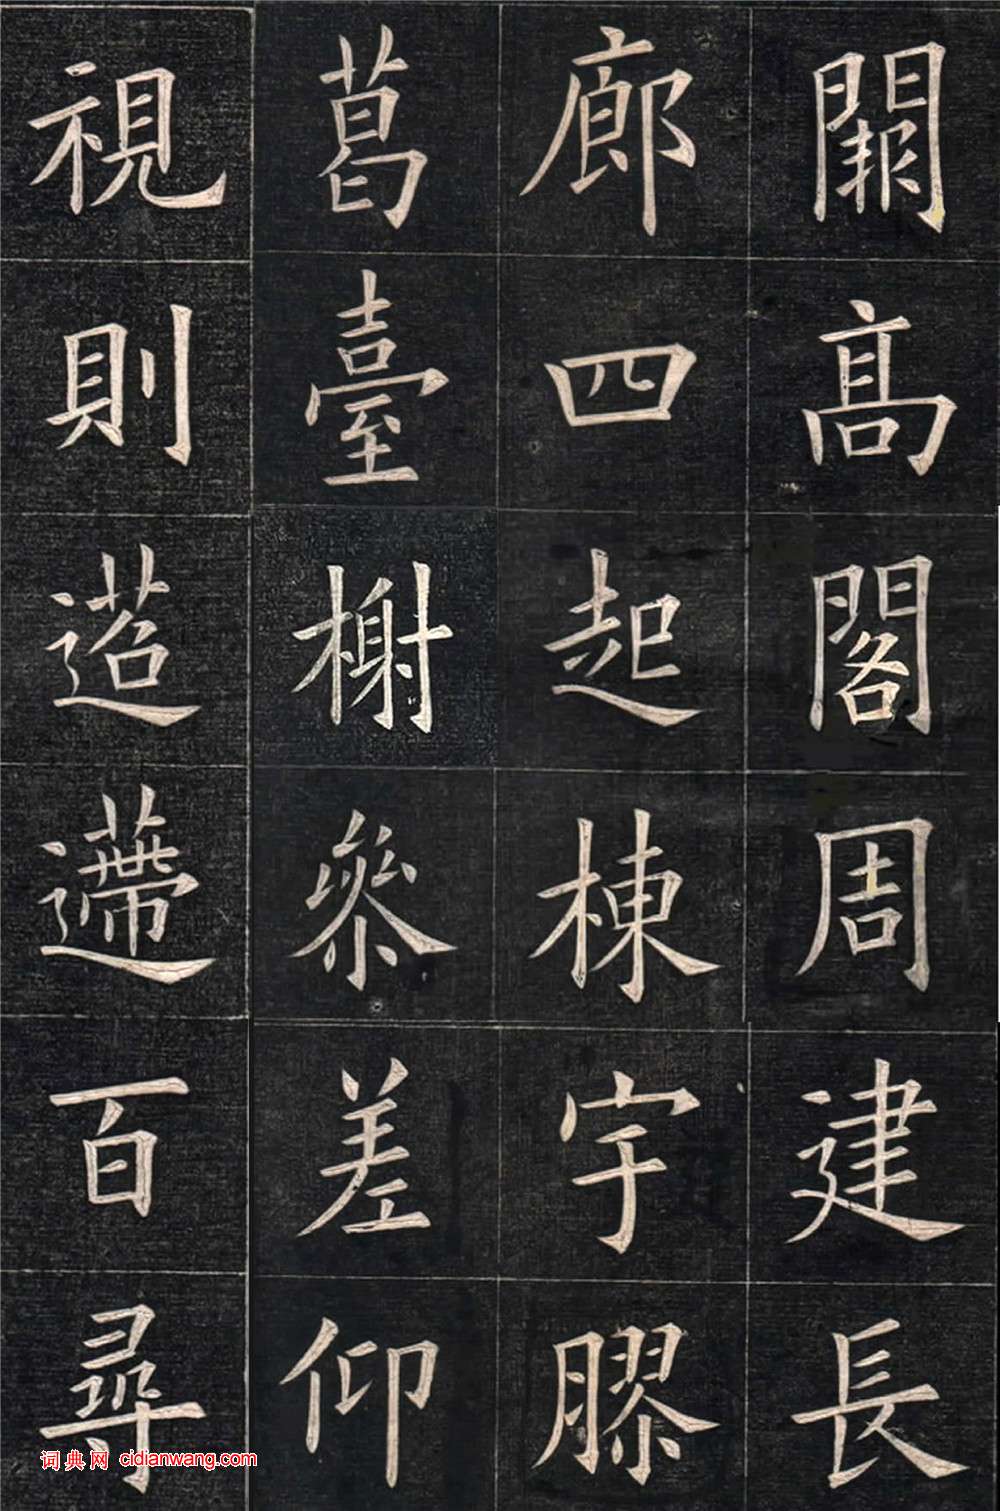 闕高閣周建長
廊四起棟宇膠
葛臺榭參差仰
視則迢遰百尋
词典网 cidianwang.com